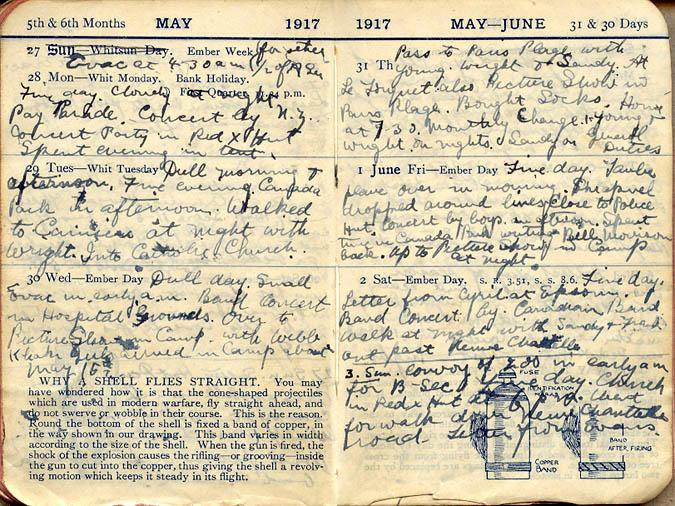 5th & 6th Months MAY 1917
27 Sun—Whitsun Day. Ember Week
Evac at 4.30 am
28 Mon—Whit Monday. Bank Holiday.
Fine day. Cloudy First Quarter p.m.
Pay Parade. Concert by N.Z.
Concert Party in Red X Hut
Spent evening in tent.
29 Tues—Whit Tuesday Dull morning &
afternoon. Fine evening. Canada
Park in afternoon. Walked
to Camiers at night with
Wright. Into Catholic Church.
30 Wed—Ember Day Dull day. Small
Evac in early a.m. Band Concert
in Hospital Grounds. Over to
Picture Show in Camp with Webb
arrived in Camp about
May 15th
WHY A SHELL FLIES STRAIGHT. You may
have wondered how it is that the cone-shaped projectiles
which are used in modern warfare, fly straight ahead, and
do not swerve or wobble in their course. This is the reason.
Round the bottom of the shell is fixed a band of copper, in
the way shown in our drawing. This band varies in width
according to the size of the shell. When the gun is fired, the
shock of the explosion causes the rifling—or grooving—inside
the gun to cut into the copper, thus giving the shell a revolv-
ing motion which keeps it steady in its flight.
1917 MAY—JUNE 31 & 30 Days
Pass to Paris Plage with
31 Th Young. Wright & Sandy. At
Le Touquet also Picture Show in
Paris Plage. Bought Socks. Home
at 7.30. Monthly Change. Young &
Wright on nights. Sandy on General
Duties
1 June Fri—Ember Day Fine day. Taube
plane over in morning. Shrapnel
dropped around lines close to Police
Hut. Concert by boys in afternoon. Spent
time in Canada Hut writing. Bill Morrison
back. Up to Picture show in Camp
at night
2 Sat—Ember Day. S. R. 3.51, S. S. 8.6. Fine day.
Letter from Cyril at Epsom.
Band Concert by Canadian Band
Walk at night with Sandy & Frank
out past Reine Chantelle
3. Sun. Convoy of 200 in early am
for B-Sec. Fine day. Church
in Red X Hut
for walk down Reine Chantelle
road. Letter from Evans
FUSE
IDENTIFICATION
COPPER
BAND
BAND
AFTER FIRING